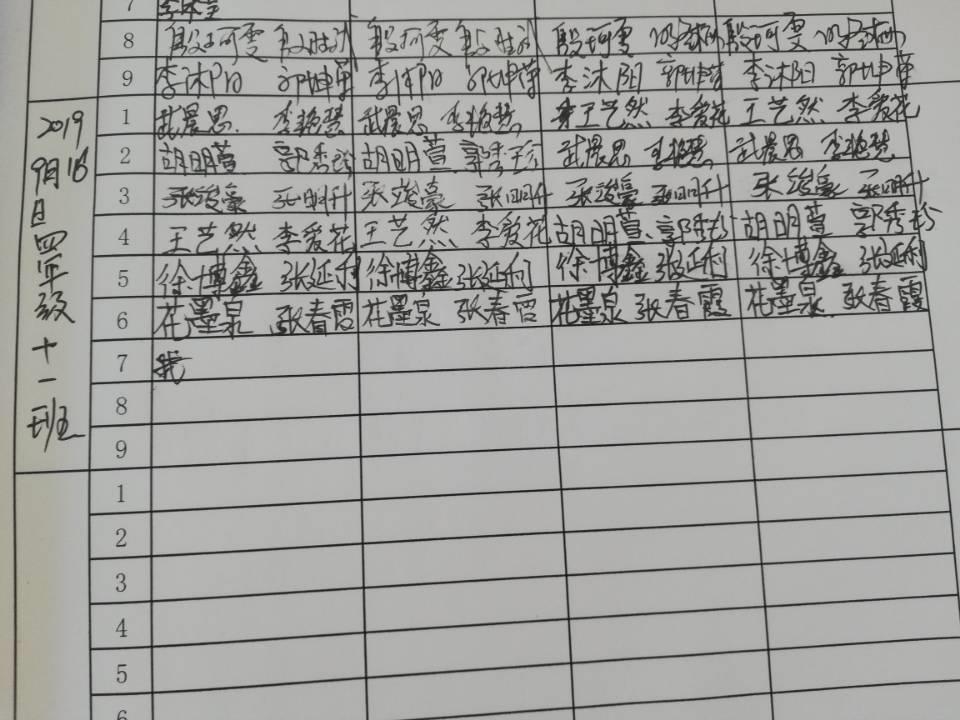 7
8 段珂雯 段胜利 段珂雯 段胜利 段珂雯 段珂雯
9 李沐阳 郭坤萍 李沐阳 郭坤萍 李沐阳 郭坤萍 李沐阳 郭坤萍
2019
9月16
日四年级十一班
1 武晨思 李艳慧 武晨思 李艳慧 王艺然 李爱花 王艺然 李爱花
2 胡明萱 郭秀珍 胡明萱 郭秀珍 武晨思 李艳慧 武晨思 李艳慧
3 张竣豪 张明升 张竣豪 张明升 张竣豪 张明升 张竣豪 张明升
4 王艺然 李爱花 王艺然 李爱花 胡明萱 郭秀珍 胡明萱 郭秀珍
5 徐博鑫 张延利 徐博鑫 张延利 徐博鑫 张延利 徐博鑫 张延利
6 花墨泉 张春霞 花墨泉 张春霞 花墨泉 张春霞 花墨泉 张春霞
7
8
9
1
2
3
4
5
6